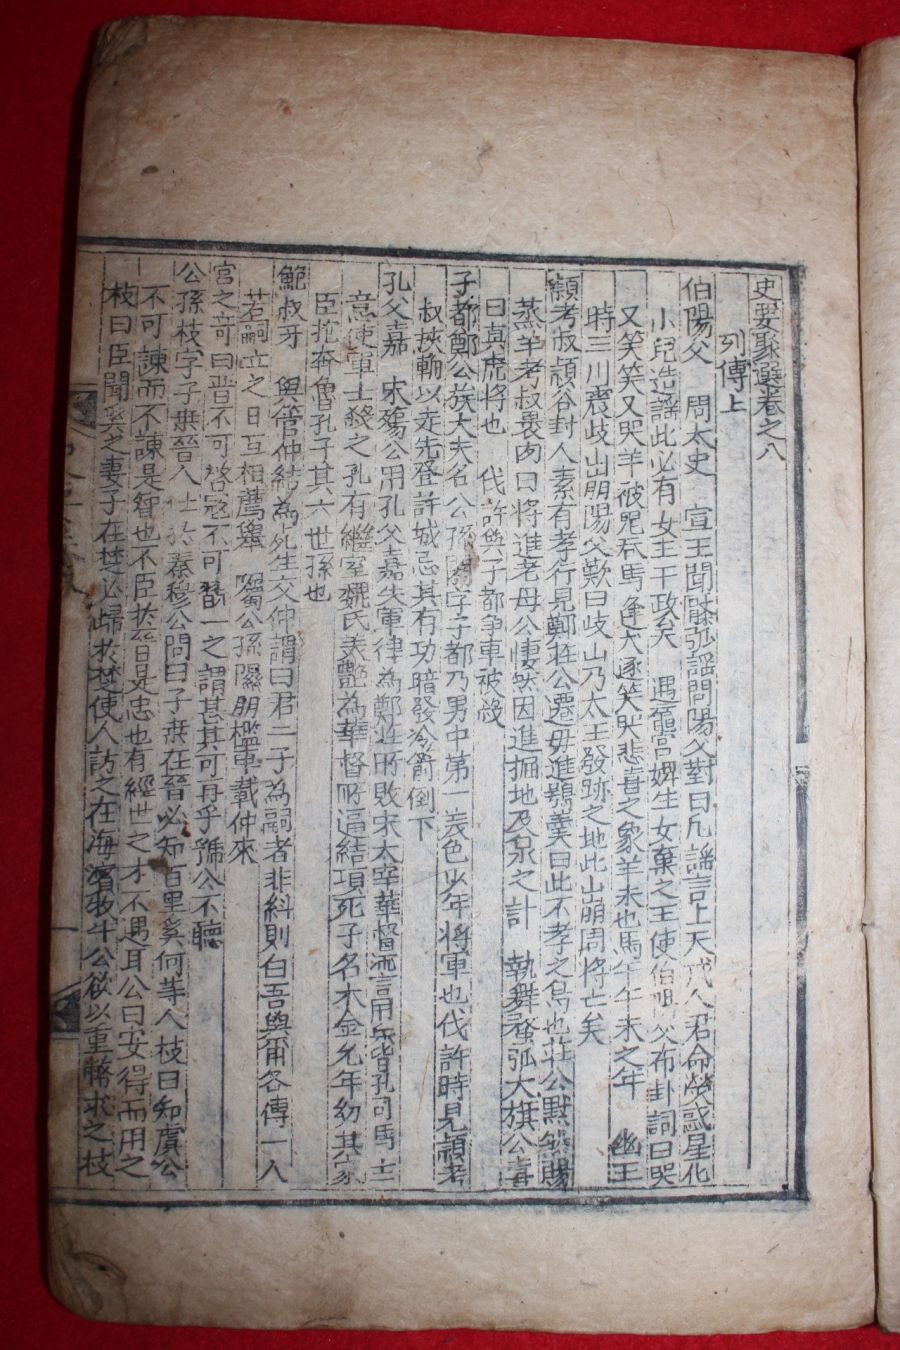 史要聚選卷之八
列傳上
伯陽父 周太史 宣王聞檿弧謠問陽父對曰凡謠言上天戒人君命熒惑星化
小兒造謠此必有女主干政矣 遇宮婢生女棄之王使伯陽父布卦詞曰哭
又笑笑又哭羊被鬼吞馬逢犬逐笑哭悲喜之象羊未也馬午午未之年 幽王
時三川震歧山崩陽父歎曰歧山乃太王發跡之地此山崩周將亡矣
穎考叔穎谷封人素有孝行見鄭莊公遷母進鶚羹曰此不孝之鳥也莊公默然賜
蒸羊考叔裹肉曰將進老母公悽然因進掘地及泉之計 執舞蝥弧大旗公喜
曰眞虎將也 伐許與子都爭車被殺
子都鄭公族大夫名公孫閼字子都乃男中第一美色少年將軍也伐許時見穎考
叔挾輈以走先登許城忌其有功暗發冷箭倒下
孔父嘉 宋殤公用孔父嘉失軍律為鄭莊所敗宋太宰華督洒言用兵皆孔司馬主
意使軍士殺之孔有繼室魏氏美艶為華督所逼結項死子名木金允年幼其家
臣抱奔魯孔子其六世孫也
鮑叔牙 與管仲結為死生交仲謂曰君二子為嗣者非糾則白吾與爾各傳一人
若嗣立之日互相薦舉 囑公孫隰朋檻車載仲來
宮之奇曰晋不可啓寇不可翫一之謂甚其可再乎虢公不聽
公孫枝字子桒晉人士於秦穆公問曰子桒在晉必知百里奚何等人枝曰知虞公
不可諫而不諫是智也不臣於晉是忠也有經世之才不遇耳公曰安得而用之
枝曰臣聞奚之妻子在楚必歸於楚使人訪之在海濱牧牛公欲以重幣求之枝